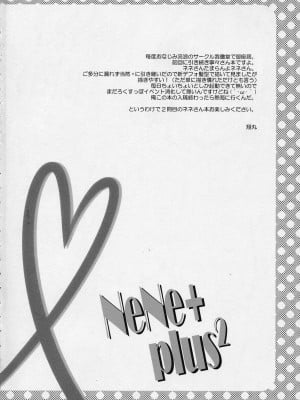 毎度おなじみ流浪のサークル
前回に引き続き寧々さん本ですよ。
ネネさんたまらんよネネさん。
ご多分に漏れず当然+に引き継いだので新デフォ髪型で描いて見ましたが
描きやすい！（ただ単に描き慣れただけとも言う）
毎日ちょいちょいとしか起動できて無いので
まだろくすっぽイベント消化して無いんですけどね（´・ω・｀）
俺この本の入稿終わったら熱海に行くんだ。
というわけで2冊目のネネさん本お楽しみください。
旭丸
NeNe+
plus2